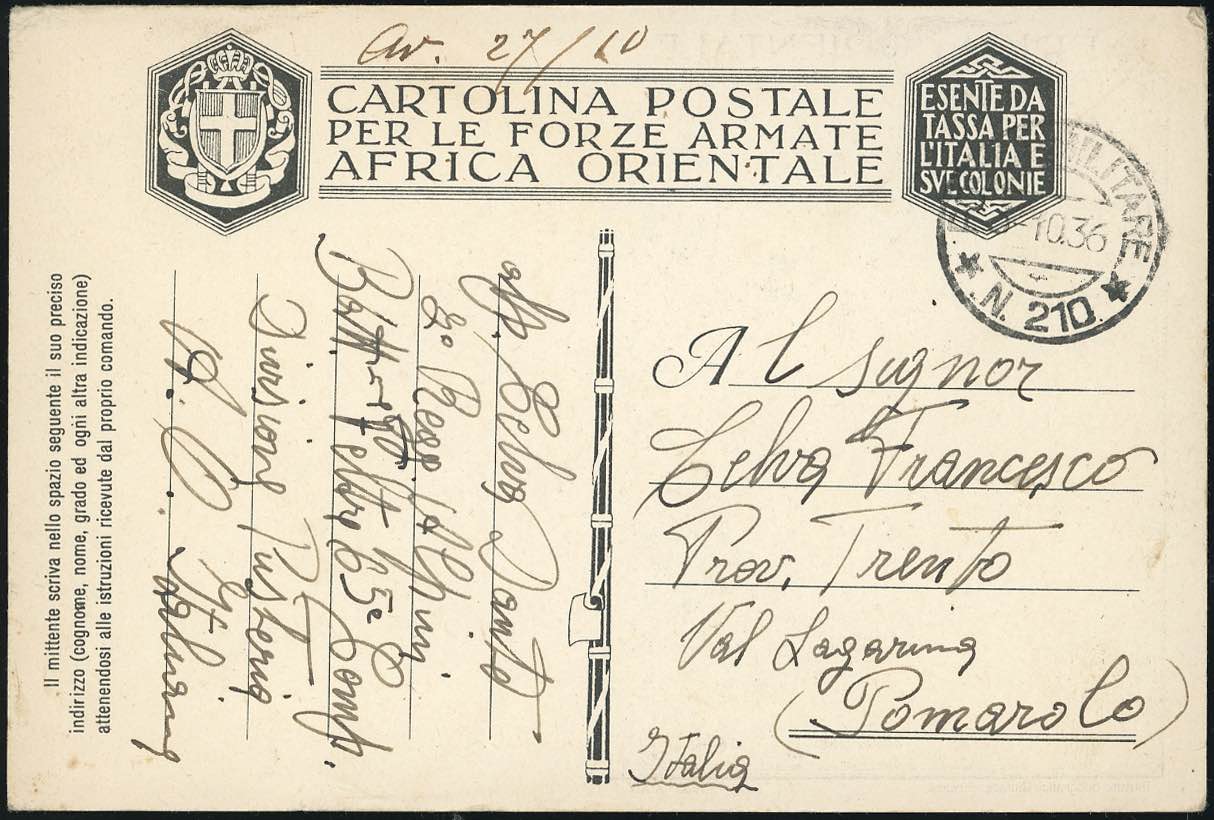 Av. 27/10
CARTOLINA POSTALE
PER LE FORZE ARMATE
AFRICA ORIENTALE
ESENTE DA
TASSA PER
L'ITALIA E
SVE COLONIE
MILITARE
-10.36
N. 210
Il mittente scriva nello spazio seguente il suo preciso
indirizzo (cognome, nome, grado ed ogni altra indicazione)
attenendosi alle istruzioni ricevute dal proprio comando.
Danto
Regg. Alpini
Feltre 65ª Comp.
Divisione Pusteria
A. O. Italiana
Al signor
Celva Francesco
Prov. Trento
Val Lagarina
(Pomarolo)
Italia